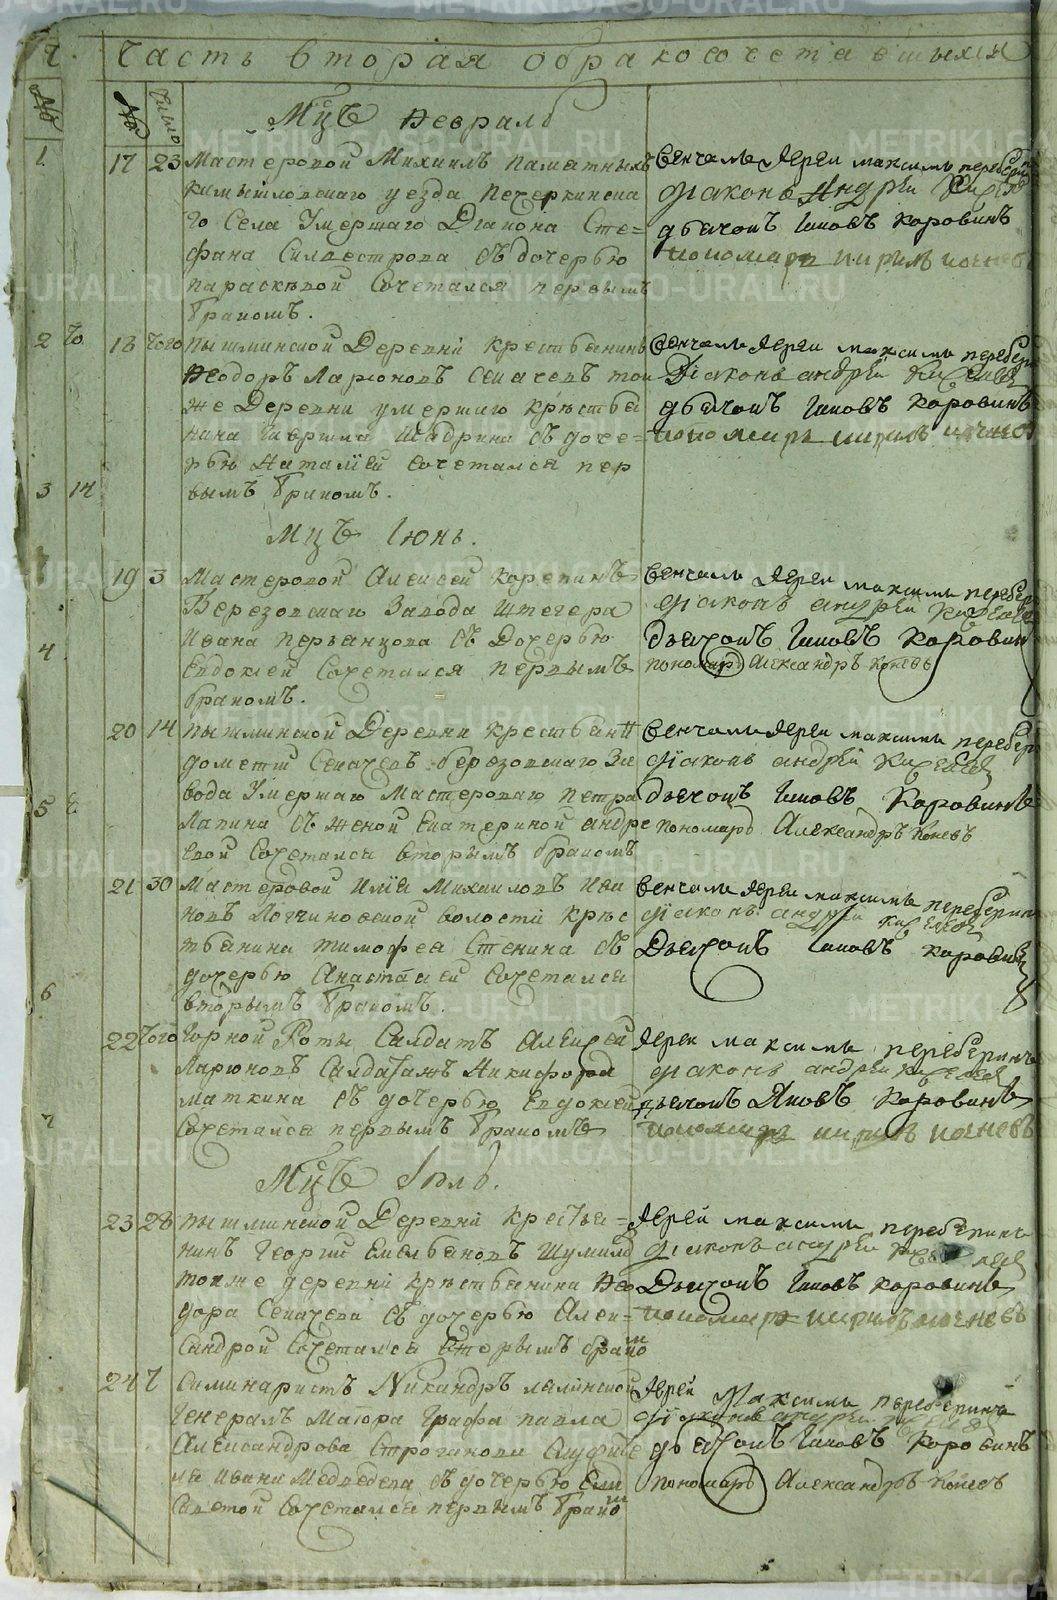 Часть вторая о бракосочетавшихся
№
№ число
Мцъ Февралъ
17 23 Мастеровой Михаилъ Паматныхъ
камышловскаго уезда Печеркинска
го Села Умершаго Диакона Сте=
фана Силвестрова съ дочерью
параскевой Сочетался первымъ
бракомъ.
Венчалъ Иереи максимъ перебер
диаконъ Андреи
дьячокъ Иаковъ Коровинъ
пономарь кирилъ кочневъ
18 того пышминской Деревни крестьянинъ
Феодоръ Ларионовъ Секачевъ той
же Деревни умершаго кръстья
нина Гаврила Шабрина съ доче=
рью Наталией Сочетался пер
вымъ бракомъ.
Венчалъ Иереи максимъ перебер
Диаконъ андрей
дьячокъ Иаковъ Коровинъ
пономарь кирилъ кочневъ
Мцъ Июнь.
19 3 Мастеровой Алексей Корепинъ
Березовскаго Завода Штегера
Ивана перъянцова съ Дочерью
Евдокией Сочетался первымъ
бракомъ.
Венчалъ Иереи максимъ перебер
диаконъ андреи
дьячокъ Иаковъ Коровинъ
пономарь Александръ Коневъ
20 14 пышминской Деревни крестьянин
дометий Секачевъ березовскаго За
вода Умершаго Мастероваго петра
Лапина съ женой Екатериной андре
евой Сочетался вторымъ бракомъ
Венчалъ Иереи максимъ перебер
диаконъ андрей
дьячокъ Иаковъ Коровинъ
пономарь Александръ Коневъ
21 30 Мастеровой Илия Михаиловъ Ива
новъ Логгиновской волости крес
тьянина тимофея Стенина съ
дочерью Анастасией Сочетался
вторымъ бракомъ.
Венчалъ Иереи максимъ переберинъ
диаконъ андрей
Дьячокъ Иаковъ Коровинъ
22 того Горной Роты Салдатъ Алексей
Ларионовъ Салдата Никифора
маткина съ дочерью Евдокией
Сочетался первымъ бракомъ
Иереи максимъ переберинъ
диаконъ андреи
дьячокъ Яковъ Коровинъ
пономарь кирилъ кочневъ
Мцъ Июль.
23 28 пышминской Деревни крестья=
нинъ Георгий Емельяновъ Шумилов
тояже деревни крестьянина Фео
дора Секачева съ дочерью Алек=
сандрой Сочетался вторымъ бракомъ
Иерей максимъ переберинъ
диаконъ андрей
Дьячокъ Иаковъ Коровинъ
пономарь кирилъ кочневъ
24 Семинаристъ Никандръ
Генералъ Маиора Графа павла
Александрова Строганова Служите
ля Ивана Медведева съ дочерью Ели
саветой Сочетался первымъ бракомъ
Иерей Максимъ переберинъ
диаконъ андреи
дьячокъ Иаковъ Коровинъ
пономарь Александръ Коневъ
1
2
3 14
4
5
6
7
METRIKI.GASO-URAL.RU